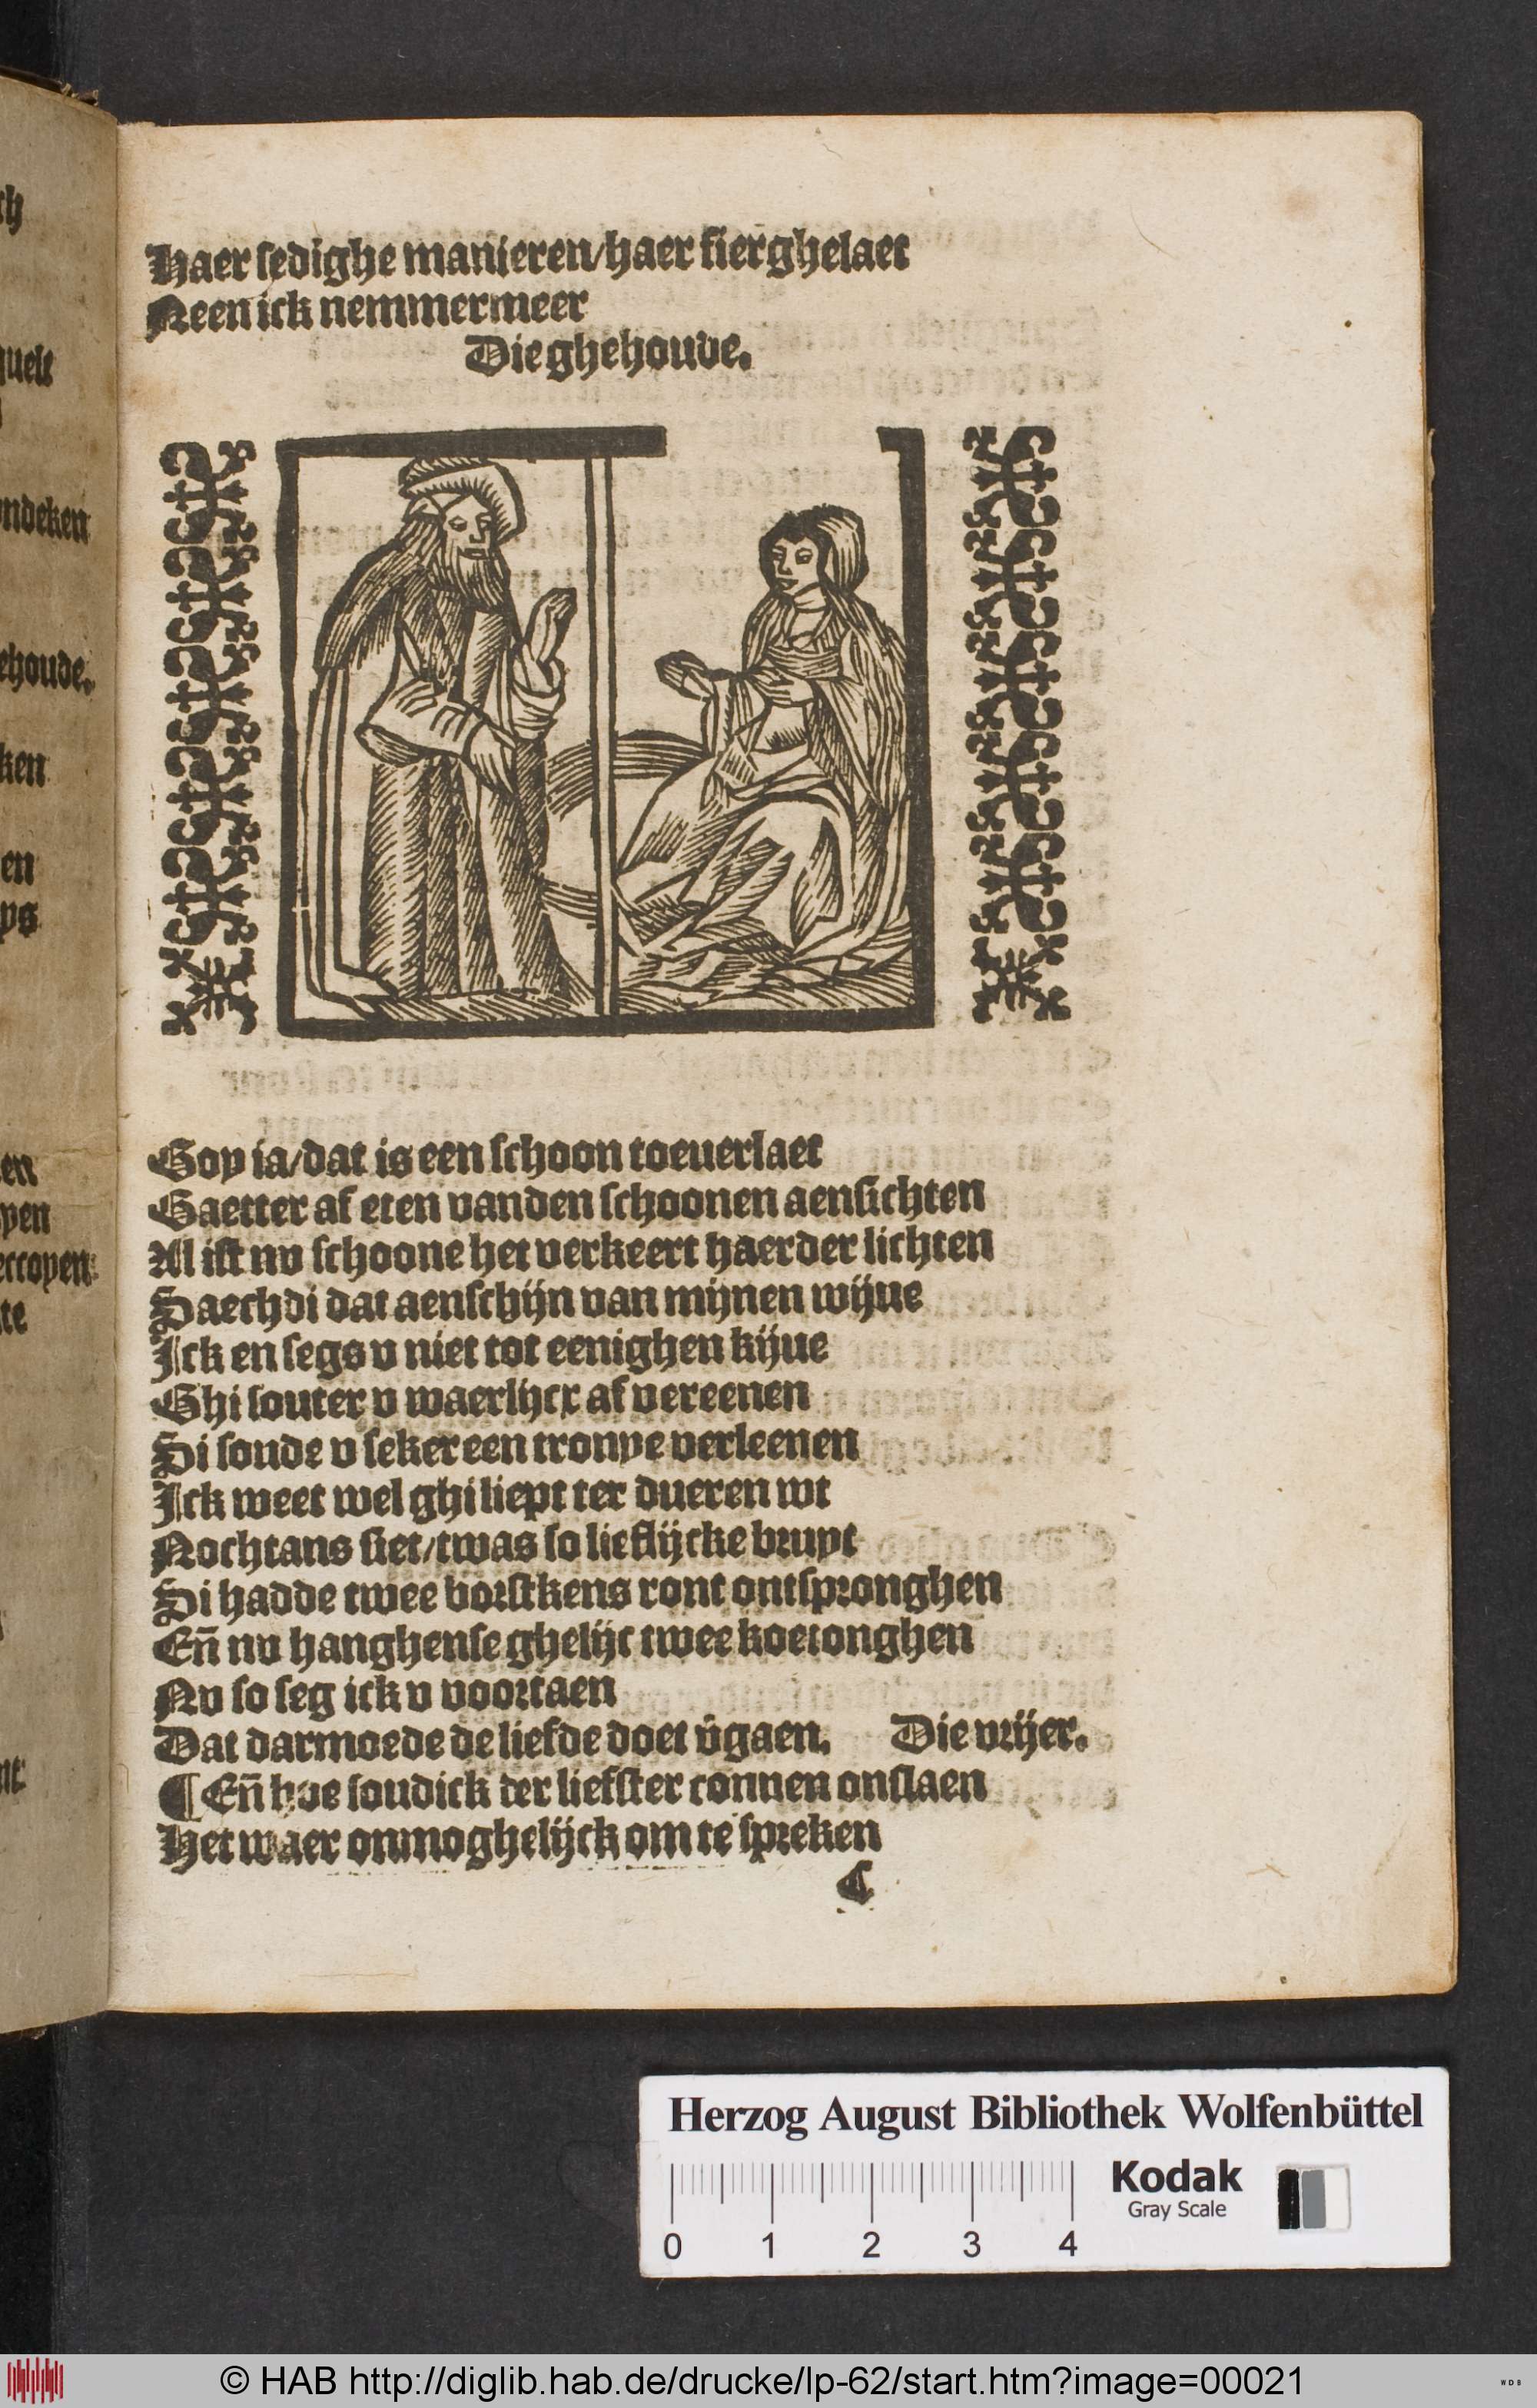 Haer sedighe manieren/haer fierghelaet
Neen ick nemmermeer
Die ghehoude.
Goy ia/dat is een schoon toeuerlaet
Gaetter af eten vanden schoonen aensichten
Al ist nv schoone het verkeert haerder lichten
Saechdi dat aenschijn van mijnen wijue
Ick en segs v niet tot eenighen kijue
Ghi souter v waerlijck af vereenen
Si soude v seker een tronye verleenen
Ick weet wel ghi liept ter dueren wt
Nochtans siet/twas so lieflijcke bruyt
Si hadde twee borstkens ront ontspronghen
Eñ nv hanghense ghelijc twee koetonghen
Nv so seg ick v voortaen
Dat darmoede de liefde doet v̄gaen. Die vrijer.
¶ Eñ hoe soudick der liefster connen onslaen
Het waer onmoghelijck om te spreken
¶
ch
quelt
ondeken
ehoude.
ken
en
ys
en
pen
te
nt
Herzog August Bibliothek Wolfenbüttel
Kodak
Gray Scale
0 1 2 3 4
© HAB http://diglib.hab.de/drucke/lp-62/start.htm?image=00021
WDB